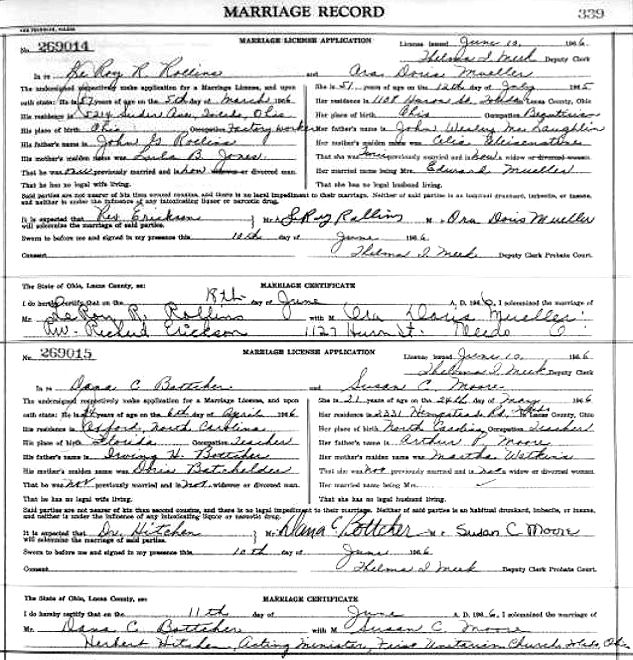 MARRIAGE RECORD 339
No. 269014 MARRIAGE LICENSE APPLICATION License issued June 10, 1966
Thelma I. Meek Deputy Clerk
In re LeRoy R. Rollins and Ora Doris Mueller
The undersigned respectively make application for a Marriage License, and upon She is 51 years of age on the 12th day of July 1965
oath state: He is 57 years of age on the 5th day of March 1966 Her residence is 1108 Huron St. Toledo Lucas County, Ohio
His residence is 5214 Suder Ave, Toledo, Ohio Her place of birth Ohio Occupation Beautician
His place of birth Ohio Occupation Factory worker Her father's name is John Wesley McLaughlin
His father's name is John G. Rollins Her mother's maiden name was Celia
His mother's maiden name was Lula B. Jones That she was previously married and is now widow or divorced woman.
That he was previously married and is now or divored man. Her married name being Mrs. Edward Mueller
That he has no legal wife living. That she has no legal husband living.
Said parties are not nearer of kin than second cousins, and there is no legal impediment to their marriage. Neither of said parties is an habitual drunkard, imbecile, or insane,
and neither is under the influence of any intoxicating liquor or narcotic drug.
It is expected that Rev. Erickson Mr. LeRoy Rollins M Ora Doris Mueller
will solemnize the marriage of said parties.
Sworn to before me and signed in my presence this 10th day of June 1966
Consent Thelma I. Meek Deputy Clerk Probate Court.
The State of Ohio, Lucas County, ss: MARRIAGE CERTIFICATE
I do hereby certify that on the 18th day of June A. D. 1966, I solemnized the marriage of
Mr. LeRoy R. Rollins with M Ora Doris Mueller
Rev. Richard Erickson 1127 Huron St. Toledo O.
No. 269015 MARRIAGE LICENSE APPLICATION License issued June 10, 1966
Thelma I. Meek Deputy Clerk
In re Dana C. Bottcher and Susan C. Moore
The undersigned respectively make application for a Marriage License, and upon She is 21 years of age on the 26th day of May 1966
oath state: He is years of age on the 6th day of April 1966 Her residence is 2331 Hempstead Rd, Toledo Lucas County, Ohio
His residence is Oxford, North Carolina Her place of birth North Carolina Occupation Teacher
His place of birth Florida Occupation Teacher Her father's name is Arthur P. Moore
His father's name is Irving H. Bottcher Her mother's maiden name was Martha Watkins
His mother's maiden name was Doris Batchelder That she was not previously married and is not a widow or divorced woman.
That he was not previously married and is not widower or divorced man. Her married name being Mrs.
That he has no legal wife living. That she has no legal husband living.
Said parties are not nearer of kin than second cousins, and there is no legal impediment to their marriage. Neither of said parties is an habitual drunkard, imbecile, or insane,
and neither is under the influence of any intoxicating liquor or narcotic drug.
It is expected that Dr. Hitchen Mr. Dana C Bottcher M Susan C Moore
will solemnize the marriage of said parties.
Sworn to before me and signed in my presence this 10th day of June 1966
Consent Thelma I. Meek Deputy Clerk Probate Court.
The State of Ohio, Lucas County, ss: MARRIAGE CERTIFICATE
I do hereby certify that on the 11th day of June A. D. 1966, I solemnized the marriage of
Mr. Dana C. Bottcher with M Susan C. Moore
Herbert Hitchen, Acting Minister, First Unitarian Church, Toledo, Ohio